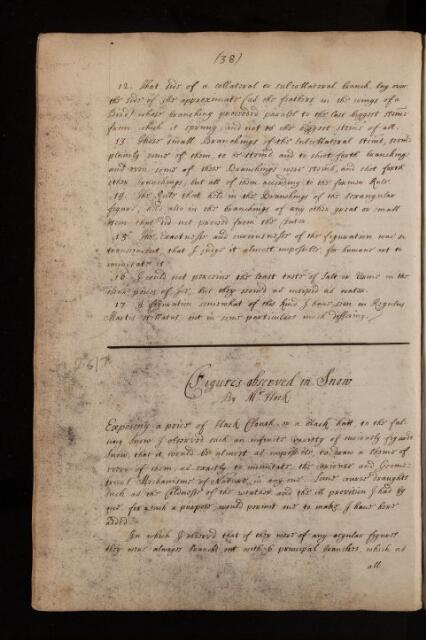 (38)
12. That side of a collateral or subcollateral branch lay over
the side of the approximate (as the feathers in the wings of a
Bird) whose branching proceeded paralel to the last biggest stemm
from which it sprung, and not to the biggest stemm of all.
13. These small Branchings of the subcollateral stemb,
plainly some of them, to be stemb and to shoot forth branchings
and even some of those Branchings were stemb, and shot forth
other branchings, but all of them according to the former Rule
14. The Rule that held in the Branchings of the sexangular
figure, held also in the branchings of any other great or small
stem that did not proceed from the center
15. The Exactness and curiousness of the figuration was so
transcendent that I judge it almost impossible for humane art to
immitate it
16. I could not perceive the least tast of Salt or in the
clear pieces of Ice, but they seemd as insipid as water.
17. A figuration somewhat of this kind I have seen in Regulus
Martis stellatus but in some particulars much differing.
Figures observed in Snow
By Mr Hook
Exposing a piece of black Clouth, or a black hatt to the fal-
ling Snow I observed such an infinite variety of curiously figured
Snow, that it would be almost as impossible, to draw a
every of them, as exactly to immitate the curious and Geome-
trical Mechanisme of Nature, in any one Some course draughts
such as the coldness of the weather and the ill provision I had by
me for such a purpose would permit me to make, I have here
added
In which I observd that if they were of any regular figures
they were always branchd out with 6 principal branches, which as
all